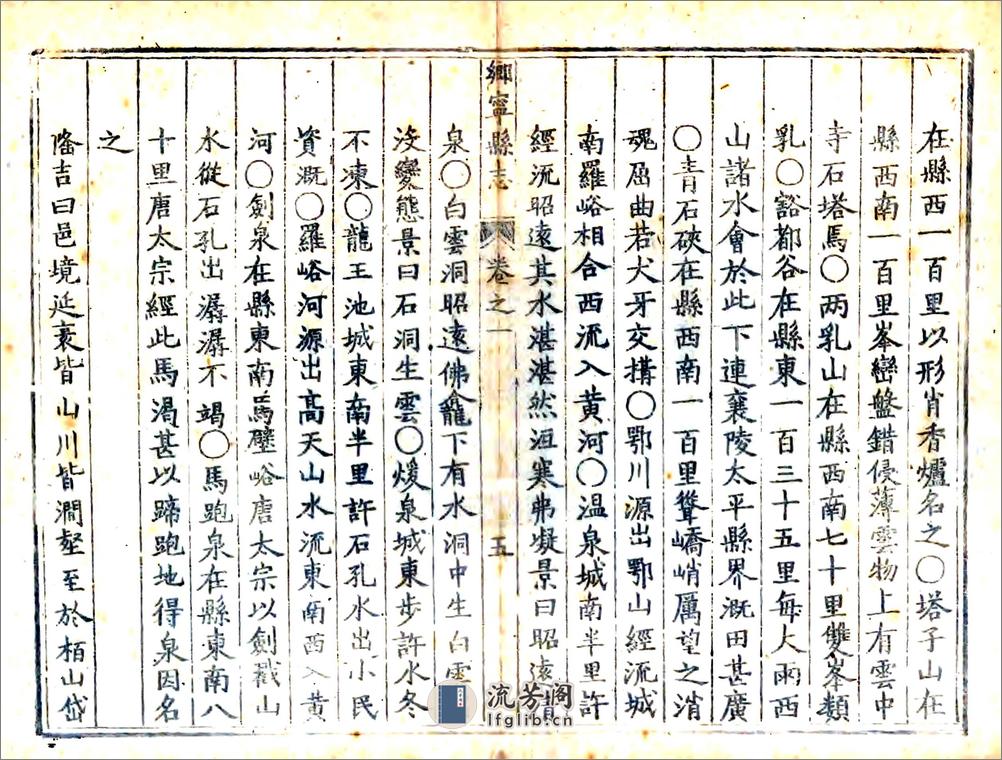 在縣西一百里以形肖香爐名之〇塔子山在
縣西南一百里峯巒盤錯侵薄雲物上有雲中
寺石塔焉〇两乳山在縣西南七十里雙峯類
乳〇豁都谷在縣東一百三十五里每大雨西
山諸水會於此下連襄陵太平縣界溉田甚廣
〇青石硤在縣西南一百里聳嶠峭厲望之消
魂屈曲若犬牙交搆〇鄂川源出鄂山經流城
南羅峪相合西流入黄河〇温泉城南半里許
經流昭遠其水湛湛然沍寒弗凝景曰昭遠
鄉寧縣志 卷之一 五
泉〇白雲洞昭遠佛龕下有水洞中生白雲
沒變態景曰石洞生雲〇煖泉城東步許水冬
不凍〇龍王池城東南半里許石孔水出小民
資溉〇羅峪河源出高天山水流東南西入黄
河〇劍泉在縣東南馬壁峪唐太宗以劍戳山
水從石孔出潺潺不竭〇馬跑泉在縣東南八
十里唐太宗經此馬渴甚以蹄跑地得泉因名
之
隆吉曰邑境延袤皆山川皆澗壑至於栢山岱
流芳阁
lfglib.cn